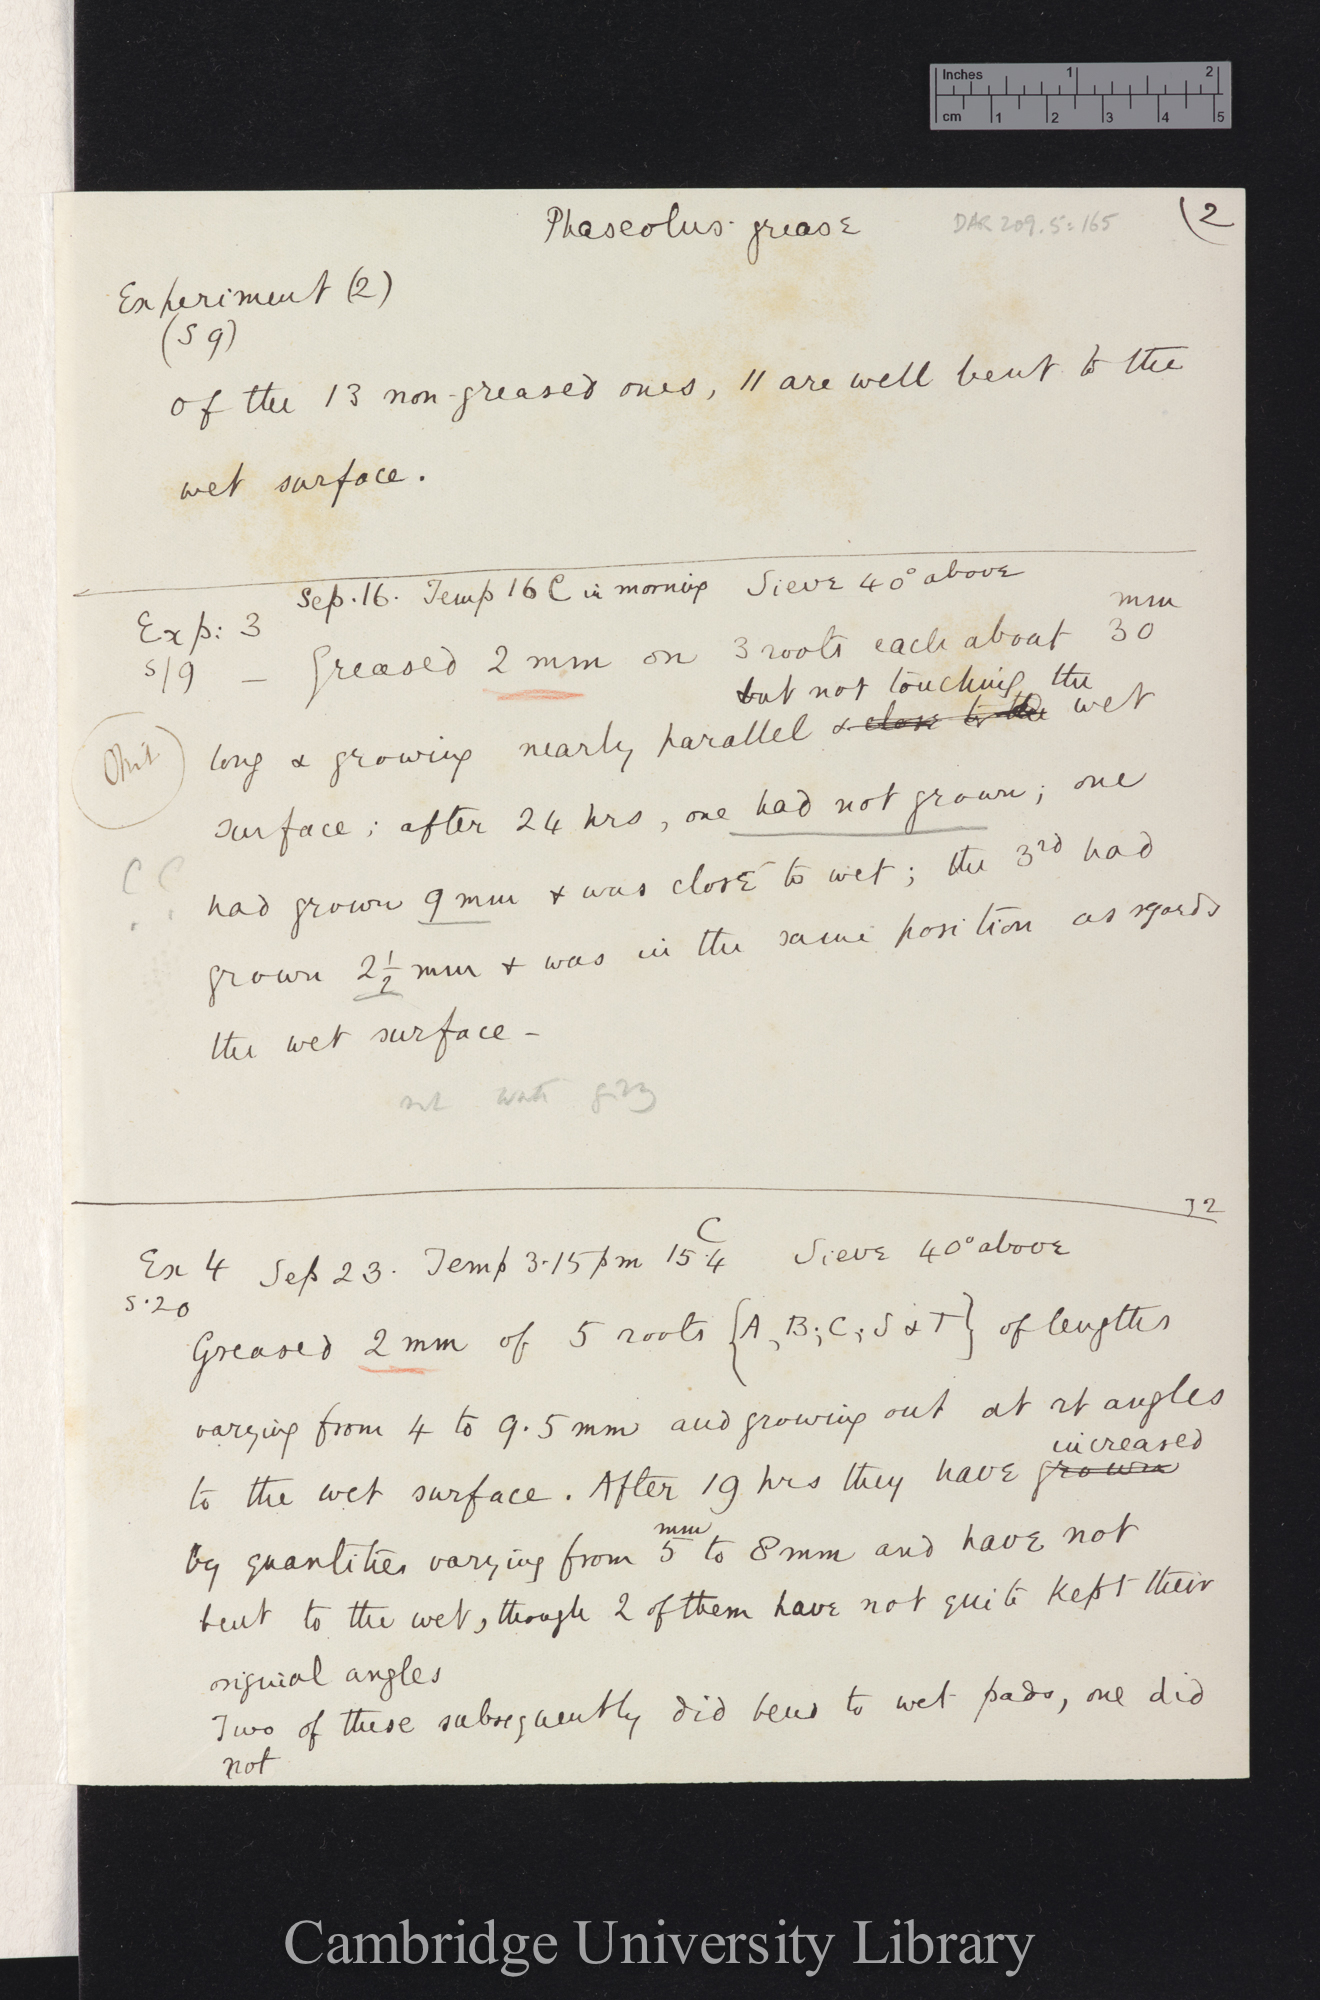 Inches 1 2
cm 1 2 3 4 5
Phaseolus. grease DAR 209.5:165 (2
Experiment (2)
(S 9)
of the 13 non-greased ones, 11 are well bent to the
wet surface.
Sep. 16. Temp 16 C in morning Sieve 40° above
Exp: 3
S/9 — Greased 2 mm on 3 roots each about 30 mm
but not touching the
long & growing nearly parallel & close to the wet
Omit
surface; after 24 hrs, one had not grown; one
had grown 9 mm & was close to wet; the 3rd had
grown 2 1/2 mm & was in the same position as regards
the wet surface –
32
Ex 4 Sep 23. Temp 3.15 pm 15.4 C Sieve 40° above
S.20
Greased 2 mm of 5 roots {A, B; C; S & T} of lengths
varying from 4 to 9.5 mm and growing out at rt angles
increased
to the wet surface. After 19 hrs they have grown
by quantities varying from 5 mm to 8 mm and have not
bent to the wet, though 2 of them have not quite kept their
original angles
Two of these subsequently did bend to wet pads, one did
not
Cambridge University Library